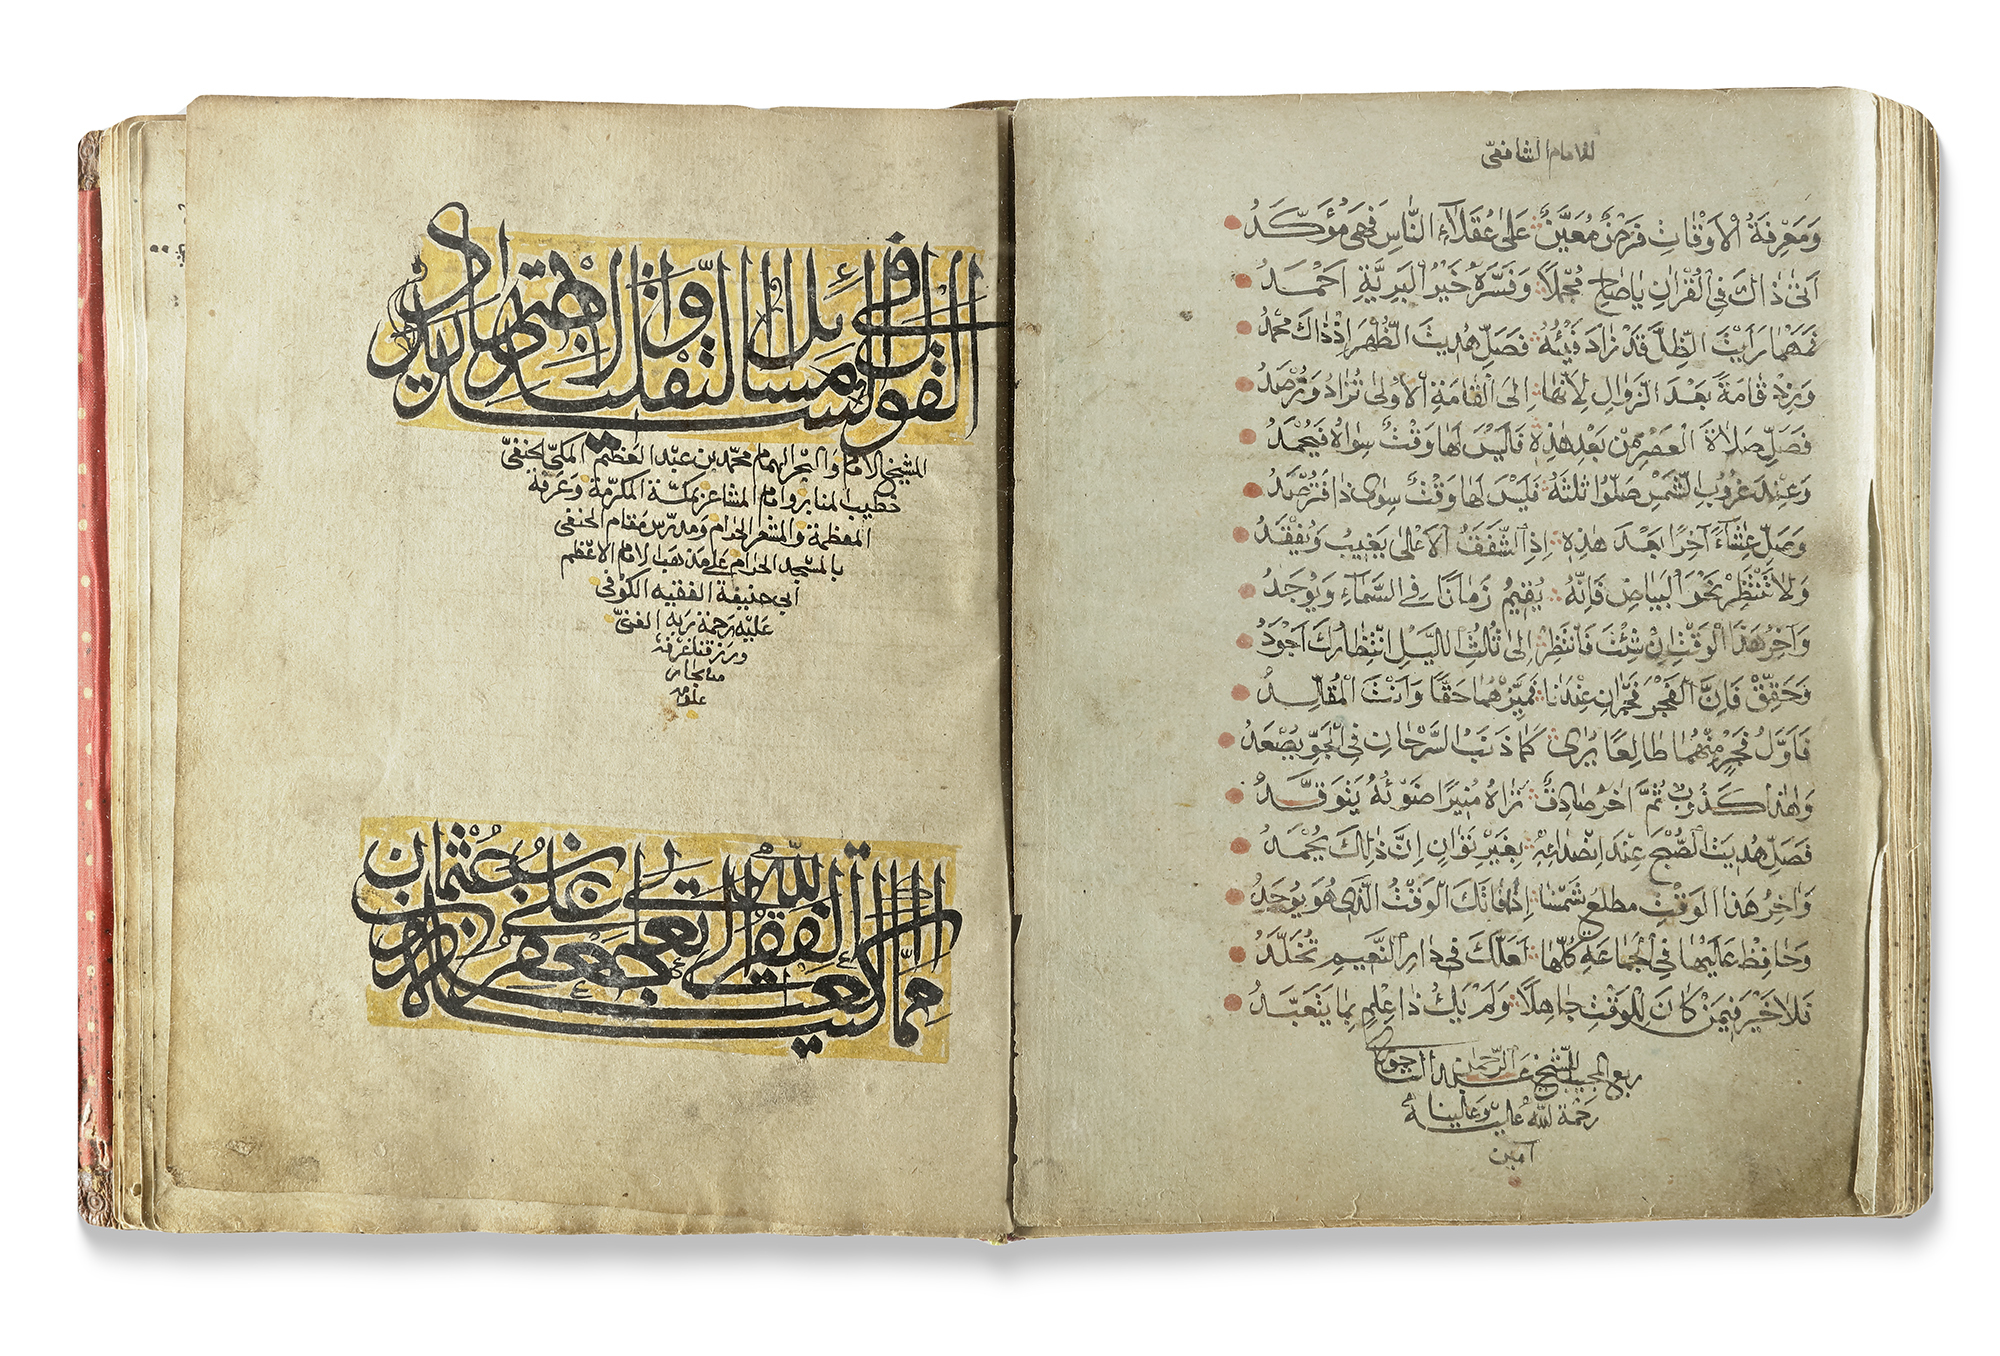 للامام الشافعيّ
وَمَعْرِفَةُ الْاَوْقَاتِ فَرْضٌ مُعَيَّنٌ عَلَى عُقَلَاءِ النَّاسِ فَهِيَ مُؤَكَّدُ
اَتَىٰ ذَاكَ فِي الْقُرْاٰنِ يَا صَاحِ مُجْمَلًا وَفَسَّرَهُ خَيْرُ الْبَرِيَّةِ اَحْمَدُ
فَمَهْمَا رَاَيْتَ الظِّلَّ قَدْ زَادَ فَيْئُهُ فَصَلِّ هُدِيتَ الظُّهْرَ اِذْ ذَاكَ محمد
وَزِدْ قَامَةً بَعْدَ الزَّوَالِ لِاَنَّهَا اِلَى الْقَامَةِ الْاُولَى تُزَادُ وَتُرْصَدُ
فَصَلِّ صَلَاةَ الْعَصْرِ مِنْ بَعْدِ هٰذِهِ فَلَيْسَ لَهَا وَقْتٌ سِوَاهُ فَيُحْمَدُ
وَعِنْدَ غُرُوبِ الشَّمْسِ صَلُّوا ثَلٰثَةً فَلَيْسَ لَهَا وَقْتٌ سِوَى ذَا فَتُرْصَدُ
وَصَلِّ عِشَاءً آخِرًا بَعْدَ هٰذِهِ اِذِ الشَّفَقُ الْاَعْلَى يَغِيبُ وَيُفْقَدُ
وَلَا تَنْتَظِرْ نَحْوَ الْبَيَاضِ فَاِنَّهُ يُقِيمُ زَمَانًا فِي السَّمَاءِ وَيُوجَدُ
وَآخِرُ هٰذَا الْوَقْتِ اِنْ شِئْتَ فَانْتَظِرْ اِلَى ثُلُثِ اللَّيْلِ انْتِظَارُكَ اَجْوَدُ
وَحَقِّقْ فَاِنَّ الْفَجْرَ فَجْرَانِ عِنْدَنَا فَمَيِّزْهُمَا حَقًّا وَاَنْتَ الْمُقَلِّدُ
فَاَوَّلُ فَجْرٍ مِنْهُمَا طَالِعًا يُرَى كَمَا ذَنَبُ السَّرْحَانِ فِي الْجَوِّ يَصْعَدُ
وَهٰذَا كَذُوبٌ ثُمَّ اٰخَرُ صَادِقٌ تَرَاهُ مُنِيرًا ضَوْئُهُ يَتَوَقَّدُ
فَصَلِّ هُدِيتَ الصُّبْحَ عِنْدَ ابْتِدَائِهِ بِغَيْرِ تَوَانٍ اِنَّ ذٰلِكَ يُحْمَدُ
وَاٰخِرُ هٰذَا الْوَقْتِ مطلع شَمْسِنَا اِذَا فَاتَكَ الْوَقْتُ الَّذِي هُوَ يُوجَدُ
وَحَافِظْ عَلَيْهَا فِي الْجَمَاعَةِ كُلِّهَا لَعَلَّكَ فِي دَارِ النَّعِيمِ تُخَلَّدُ
فَلَا خَيْرَ فِيمَنْ كَانَ لِلْوَقْتِ جَاهِلًا وَلَمْ يَكُ ذَا عِلْمٍ بِمَا يَتَعَبَّدُ
ربع المجيب للشّيخ عبد الرّحمن التاجوري
رَحْمَةُ اللّٰه عَلَيْهِ وَعَلَيْنَا
آمين
القول السديد في بعض مسائل الاجتهاد والتقليد
الشيخ الامام والبحر الهمام محمّد بن عبد العظيم المكّيّ الحنفيّ
خطيب المنابر وامام المشاعر بمكّة المكرّمة وعرفة
المعظمة والمشعر الحرام ومدرّس مقام الحنفي
بالمسجد الحرام على مذهب الامام الاعظم
ابي حنيفة الفقيه الكوفي
عليه رحمة ربّه الغنيّ
ورزقنا غرفة
من بحار
علمه
ممّا كتبه الفقير الى الله تعالى